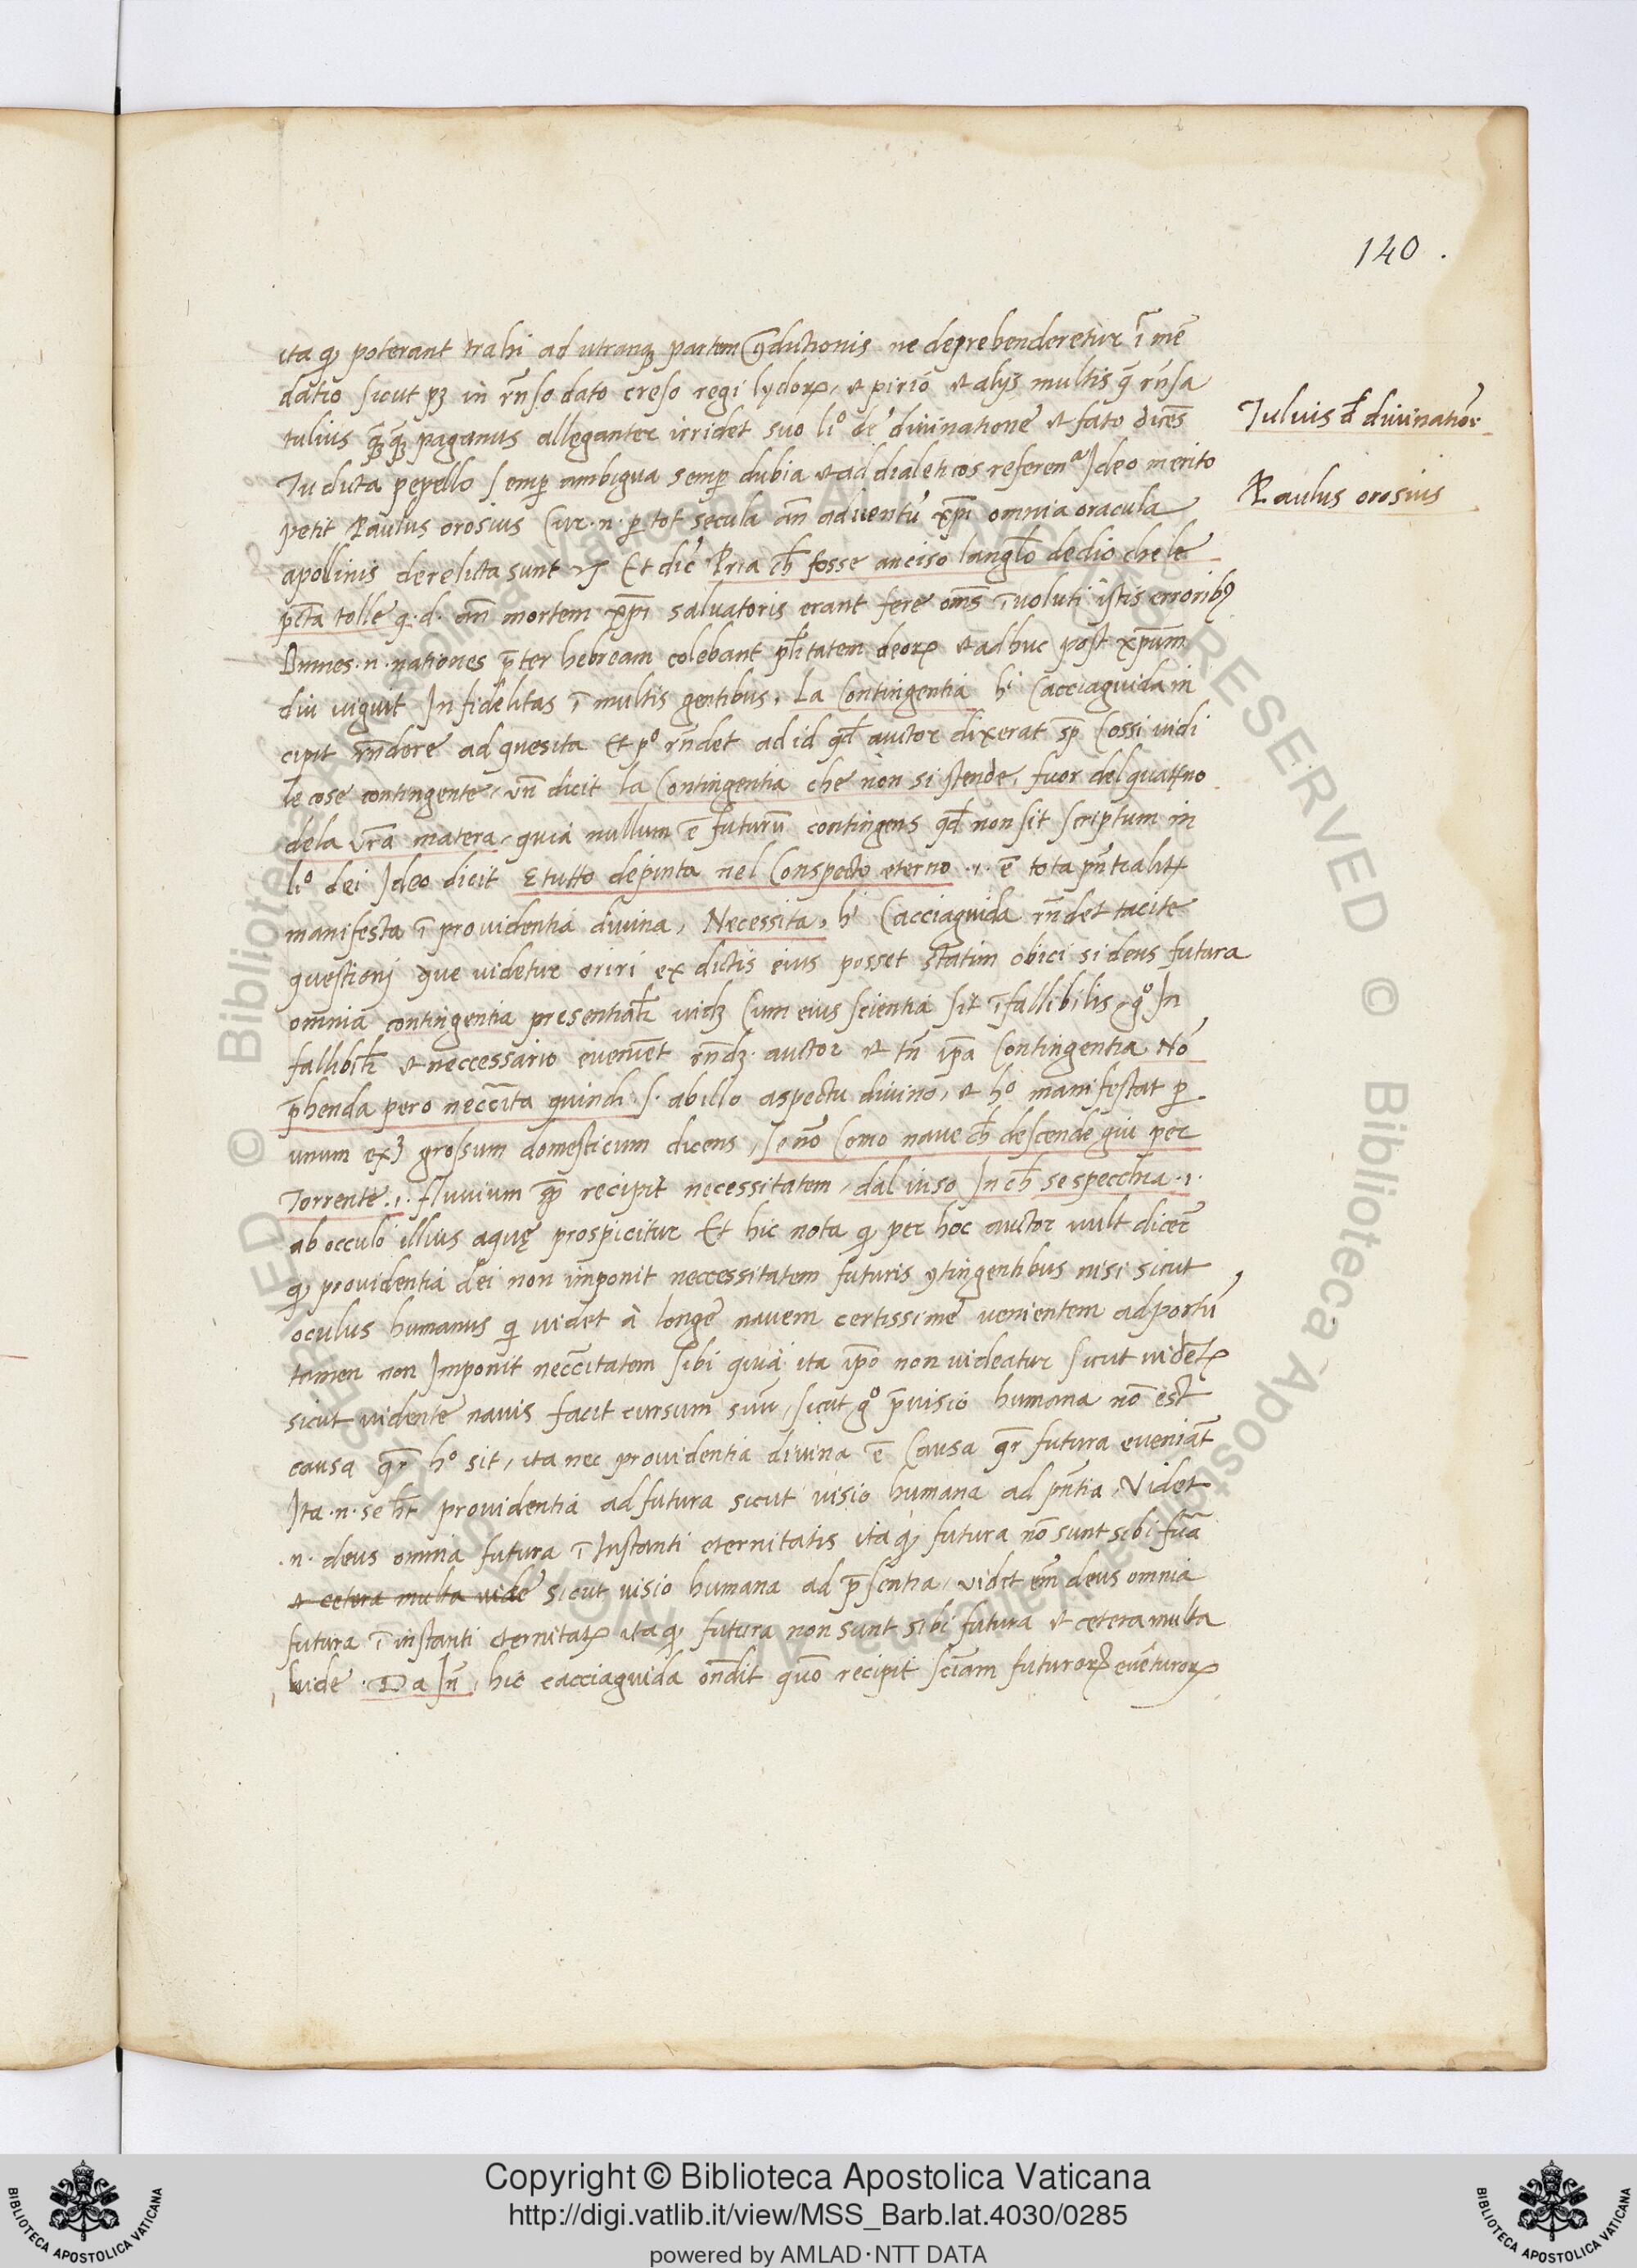 140.
ita qꝫ poterant trahi ad utranqꝫ partem ꝯdictionis ne deprehenderetur ī mē
datio sicut pꝫ in rñso dato creso regi lydorꝝ, et pirrō et alijs multis q̄ rñsa
tulius q̄qꝫ paganus alleganter irridet suo liº de divinatione et fato dicēs
Tulius d̄ divinatiōe
Tu dicta Semꝑ ambigua semꝑ dubia et ad dialeticos Ideo merito
petit Paulus orosius Cur .n. ꝑ tot secula añ adventū xp̄i omnia oracula
Paulus orosius
apollinis derelicta sunt Et dic' Pria ch̄ fosse anciso langl̄o dedio che le
pc̄ta tolle q.d. añ mortem xp̄i salvatoris erant fere om̄s īvoluti istis erroribꝰ
Omnes .n. nationes p̄ter hebream colebant pl̄itatem deorꝝ et adhuc post xp̄um
diu viguit Infidelitas ī multis gentibus. La Contingentia hⁱ Cacciaguida in
cipit rñdere ad quesita Et pº rñdet ad id qd̄ auctor dixerat sp̄ Cossi vidi
le cose contingente, vñ dicit la Contingentia che non si stende, fuor del quatt'no
dela vr̄a matera, quia nullum ē futurū contingens qd̄ non sit scriptum in
liº dei Ideo dicit E tutto depinta nel Conspecto eterno .i. ē tota pñtialit'
manifesta ī providentia divina, Necessita, hⁱ Cacciaguida rñdet tacite
questionj que videtur oriri ex dictis eius posset statim obici si deus futura
omnia contingentia presential'r vidꝫ Cum eius scientia sit īfallibilis, gº In
fallibil'r et neccessario evenīet rñdꝫ auctor et tñ ip̄a Contingentia Nō
p̄henda pero necc̄ita quindi .s. ab illo aspectu divino, et hº manifestat ꝑ
unum exꝫ grossum domesticum dicens, se nō Como nave ch̄ descende giu per
Torrente .i. fluvium recipit necessitatem, dal viso In ch̄ se specchia .i.
ab occulo illius aquę prospicitur Et hic nota qꝫ per hoc auctor vult dicer̄
qꝫ providentia dei non imponit neccessitatem futuris ꝯtingentibus nisi sicut
oculus humanus qi videt à longe navem certissime venientem ad portū
tamen non Imponit necc̄itatem sibi quia ita ip̄o non videatur sicut videt'ꝝ
sicut vidente navis facit cursum suū, sicut gº p̄visio humana nō est
causa qr̄ hº sit, ita nec providentia divina ē Causa qr̄ futura eveniāt
Ita .n. se hēt providentia ad futura sicut visio humana ad pñtia, Videt
.n. deus omnia futura ī Instanti eternitatis ita qꝫ futura nō sunt sibi fut̄a
et cetera multa vide sicut visio humana ad p̄sentia, videt em̄ deus omnia
futura ī instanti eternitatꝝ ita qꝫ futura non sunt sibi futura et cetera multa
vide. Da Iñ, hic cacciaguida oñdit quō recipit sciam futurorꝝ evēturorꝝ
Copyright © Biblioteca Apostolica Vaticana
http://digi.vatlib.it/view/MSS_Barb.lat.4030/0285
powered by AMLAD·NTT DATA
BIBLIOTECA APOSTOLICA VATICANA
BIBLIOTECA APOSTOLICA VATICANA